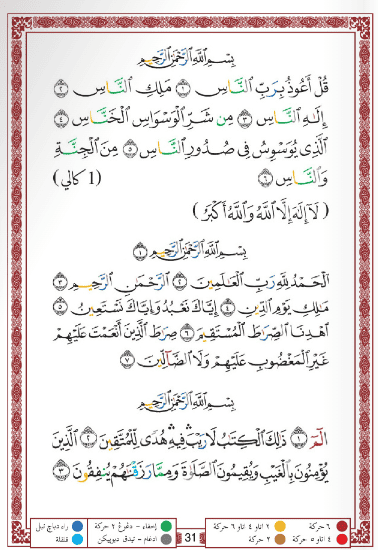 بِسْمِ اللَّهِ الرَّحْمَٰنِ الرَّحِيمِ
قُلْ أَعُوذُ بِرَبِّ النَّاسِ ١ مَلِكِ النَّاسِ ٢
إِلَٰهِ النَّاسِ ٣ مِن شَرِّ الْوَسْوَاسِ الْخَنَّاسِ ٤
الَّذِي يُوَسْوِسُ فِي صُدُورِ النَّاسِ ٥ مِنَ الْجِنَّةِ
وَالنَّاسِ ٦ (1 كالي)
(لَا إِلَهَ إِلَّا اللَّهُ وَاللَّهُ أَكْبَرُ)
بِسْمِ اللَّهِ الرَّحْمَٰنِ الرَّحِيمِ ١
الْحَمْدُ لِلَّهِ رَبِّ الْعَالَمِينَ ٢ الرَّحْمَٰنِ الرَّحِيمِ ٣
مَالِكِ يَوْمِ الدِّينِ ٤ إِيَّاكَ نَعْبُدُ وَإِيَّاكَ نَسْتَعِينُ ٥
اهْدِنَا الصِّرَاطَ الْمُسْتَقِيمَ ٦ صِرَاطَ الَّذِينَ أَنْعَمْتَ عَلَيْهِمْ
غَيْرِ الْمَغْضُوبِ عَلَيْهِمْ وَلَا الضَّالِّينَ ٧
بِسْمِ اللَّهِ الرَّحْمَٰنِ الرَّحِيمِ
الٓمٓ ١ ذَٰلِكَ الْكِتَٰبُ لَا رَيْبَ ۛ فِيهِ ۛ هُدًى لِّلْمُتَّقِينَ ٢ الَّذِينَ
يُؤْمِنُونَ بِالْغَيْبِ وَيُقِيمُونَ الصَّلَاةَ وَمِمَّا رَزَقْنَٰهُمْ يُنفِقُونَ ٣
٦ حركة
٢ اتاو ٤ اتاو ٦ حركة
إخفاء - دغوڠ ٢ حركة
٤ اتاو ٥ حركة
٢ حركة
31
ادغام - تيدق دبوڽيكن
قلقلة